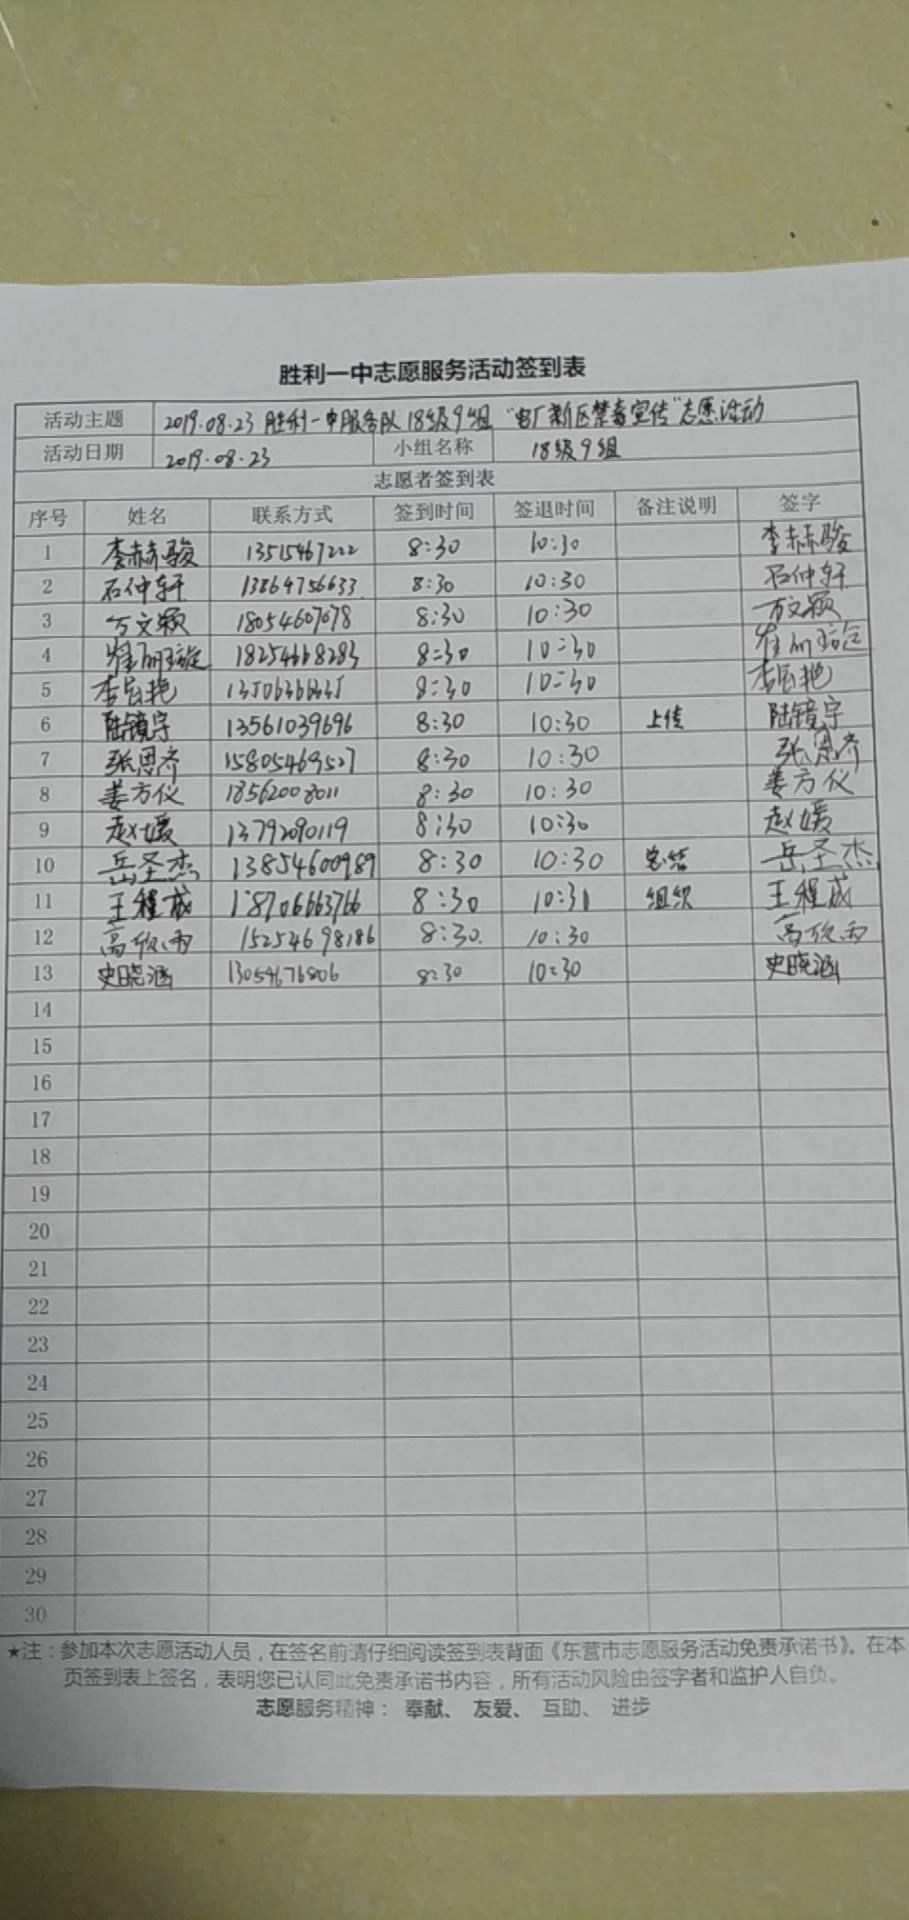 胜利一中志愿服务活动签到表
活动主题 2019.08.23 胜利一中服务队 18级9组 "电厂新区禁毒宣传"志愿活动
活动日期 2019.08.23 小组名称 18级9组
志愿者签到表
序号 姓名 联系方式 签到时间 签退时间 备注说明 签字
1 李赫骏 13515467222 8:30 10:30 李赫骏
2 石仲轩 13864756633 8:30 10:30 石仲轩
3 万文颖 18054607678 8:30 10:30 万文颖
4 崔丽璇 18254668283 8:30 10:30 崔丽璇
5 8:30 10:30
6 陆镜宇 13561039696 8:30 10:30 上传 陆镜宇
7 张思齐 15805469527 8:30 10:30 张思齐
8 姜方仪 18562008011 8:30 10:30 姜方仪
9 赵媛 13792090119 8:30 10:30 赵媛
10 岳圣杰 13854600989 8:30 10:30 总结 岳圣杰
11 王程成 18706663766 8:30 10:31 组织 王程成
12 高欣雨 15254698186 8:30 10:30 高欣雨
13 史晓涵 13054676806 8:30 10:30 史晓涵
14
15
16
17
18
19
20
21
22
23
24
25
26
27
28
29
30
★注：参加本次志愿活动人员，在签名前请仔细阅读签到表背面《东营市志愿服务活动免责承诺书》。在本
页签到表上签名，表明您已认同此免责承诺书内容，所有活动风险由签字者和监护人自负。
志愿服务精神： 奉献、 友爱、 互助、 进步